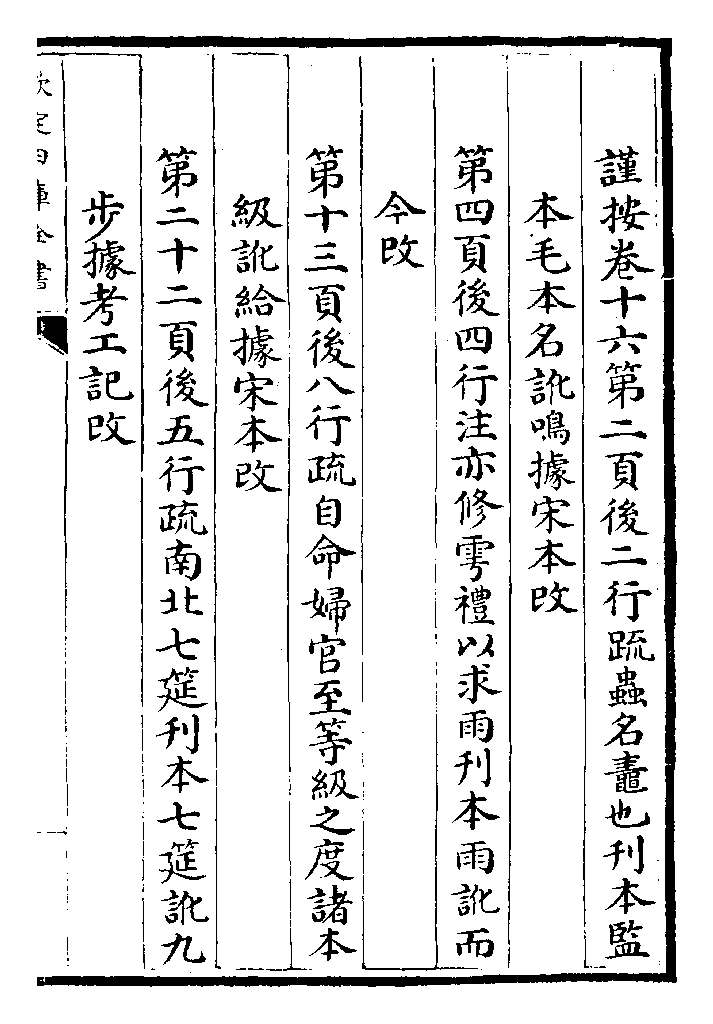 謹按卷十六第二頁後二行䟽蟲名鼃也刋本監
本毛本名訛鳴據宋本改
第四頁後四行注亦修雩禮以求雨刋本雨訛而
今改
第十三頁後八行疏自命婦官至等級之度諸本
級訛給據宋本改
第二十二頁後五行疏南北七筵刋本七筵訛九
步據考工記改
欽定四庫全書